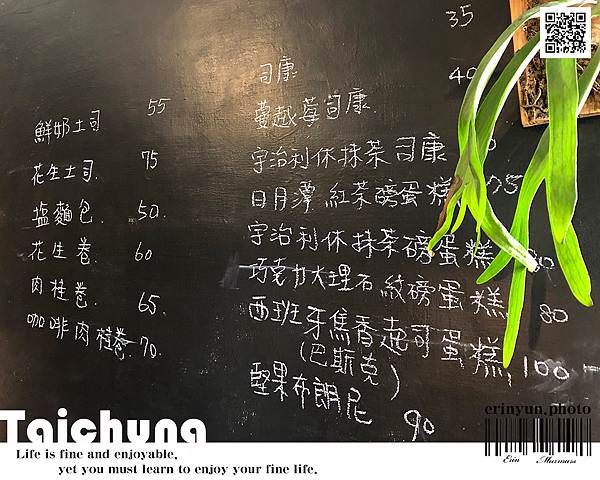 鮮奶土司 55
花生土司 75
塩麵包 50
花生卷 60
肉桂卷 65
咖啡肉桂卷 70
司康 35
蔓越莓司康 40
宇治利休抹茶司康
日月潭紅茶磅蛋糕
宇治利休抹茶磅蛋糕
巧克力大理石紋磅蛋糕 80
西班牙焦香起司蛋糕 100
(巴斯克)
堅果布朗尼 90
Taichung
Life is fine and enjoyable,
yet you must learn to enjoy your fine life.
erinyun.photo
Erin Murmurs